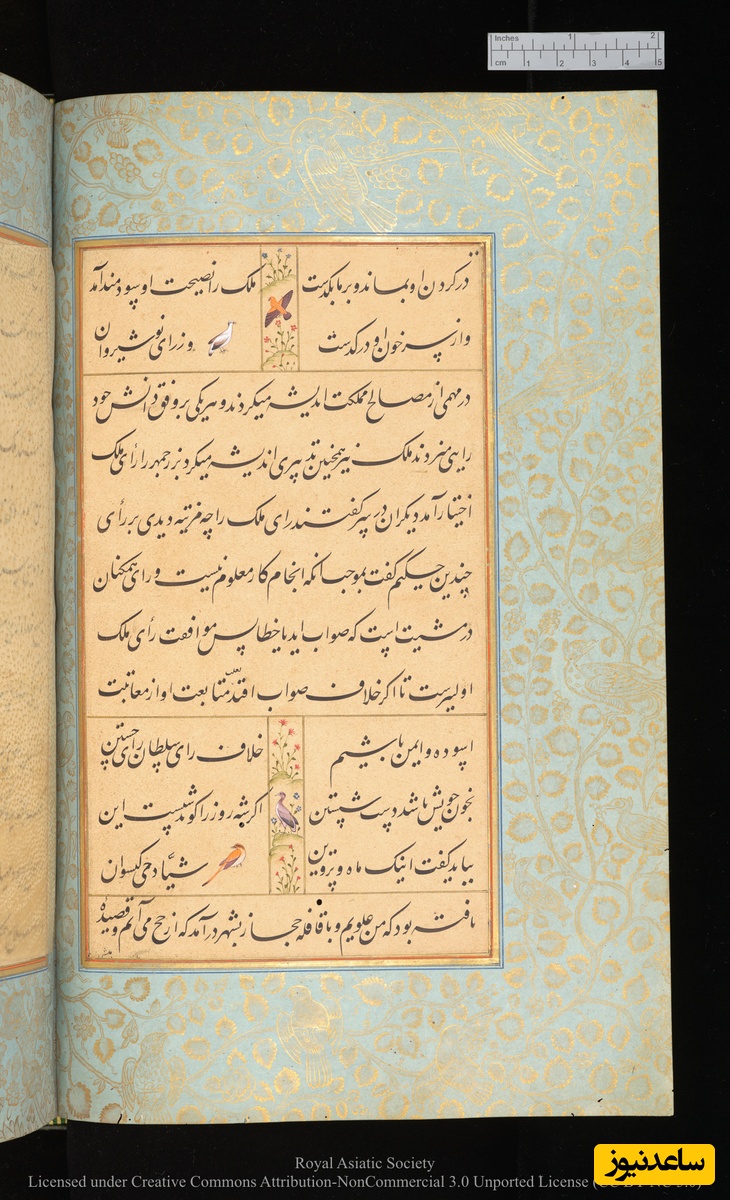 Inches 1 2
cm 1 2 3 4 5
در گردن او بماند و بر ما بگذشت ملک را نصیحت او سودمند آمد
و از سر خون او در گذشت وزرای نوشیروان
در مهمی از مصالح مملکت اندیشه میکردند و هر یکی بر وفق دانش خود
رایی میزدند ملک نیز همچنین تدبیری اندیشه میکرد بزرجمهر را رأی ملک
اختیار آمد دیگران در سر گفتند رای ملک را چه مزیّت دیدی بر رأی
چندین حکیم گفت بموجب آنکه انجام کار معلوم نیست و رای همگنان
در مشیت است که صواب آید یا خطا پس موافقت رأی ملک
اولیترست تا اگر خلاف صواب افتد بعلّت متابعت او از معاتبت
آسوده و ایمن باشیم خلاف رای سلطان رای جستن
بخون خویش باشد دست شستن اگر شه روز را گوید شبست این
بباید گفت اینک ماه و پروین شیّادی گیسوان
بافته بود که من علویم و با قافله حجاز بشهر درآمد که از حج می آیم و قصیدهٔ
Royal Asiatic Society
Licensed under Creative Commons Attribution-NonCommercial 3.0 Unported License
ساعدنیوز